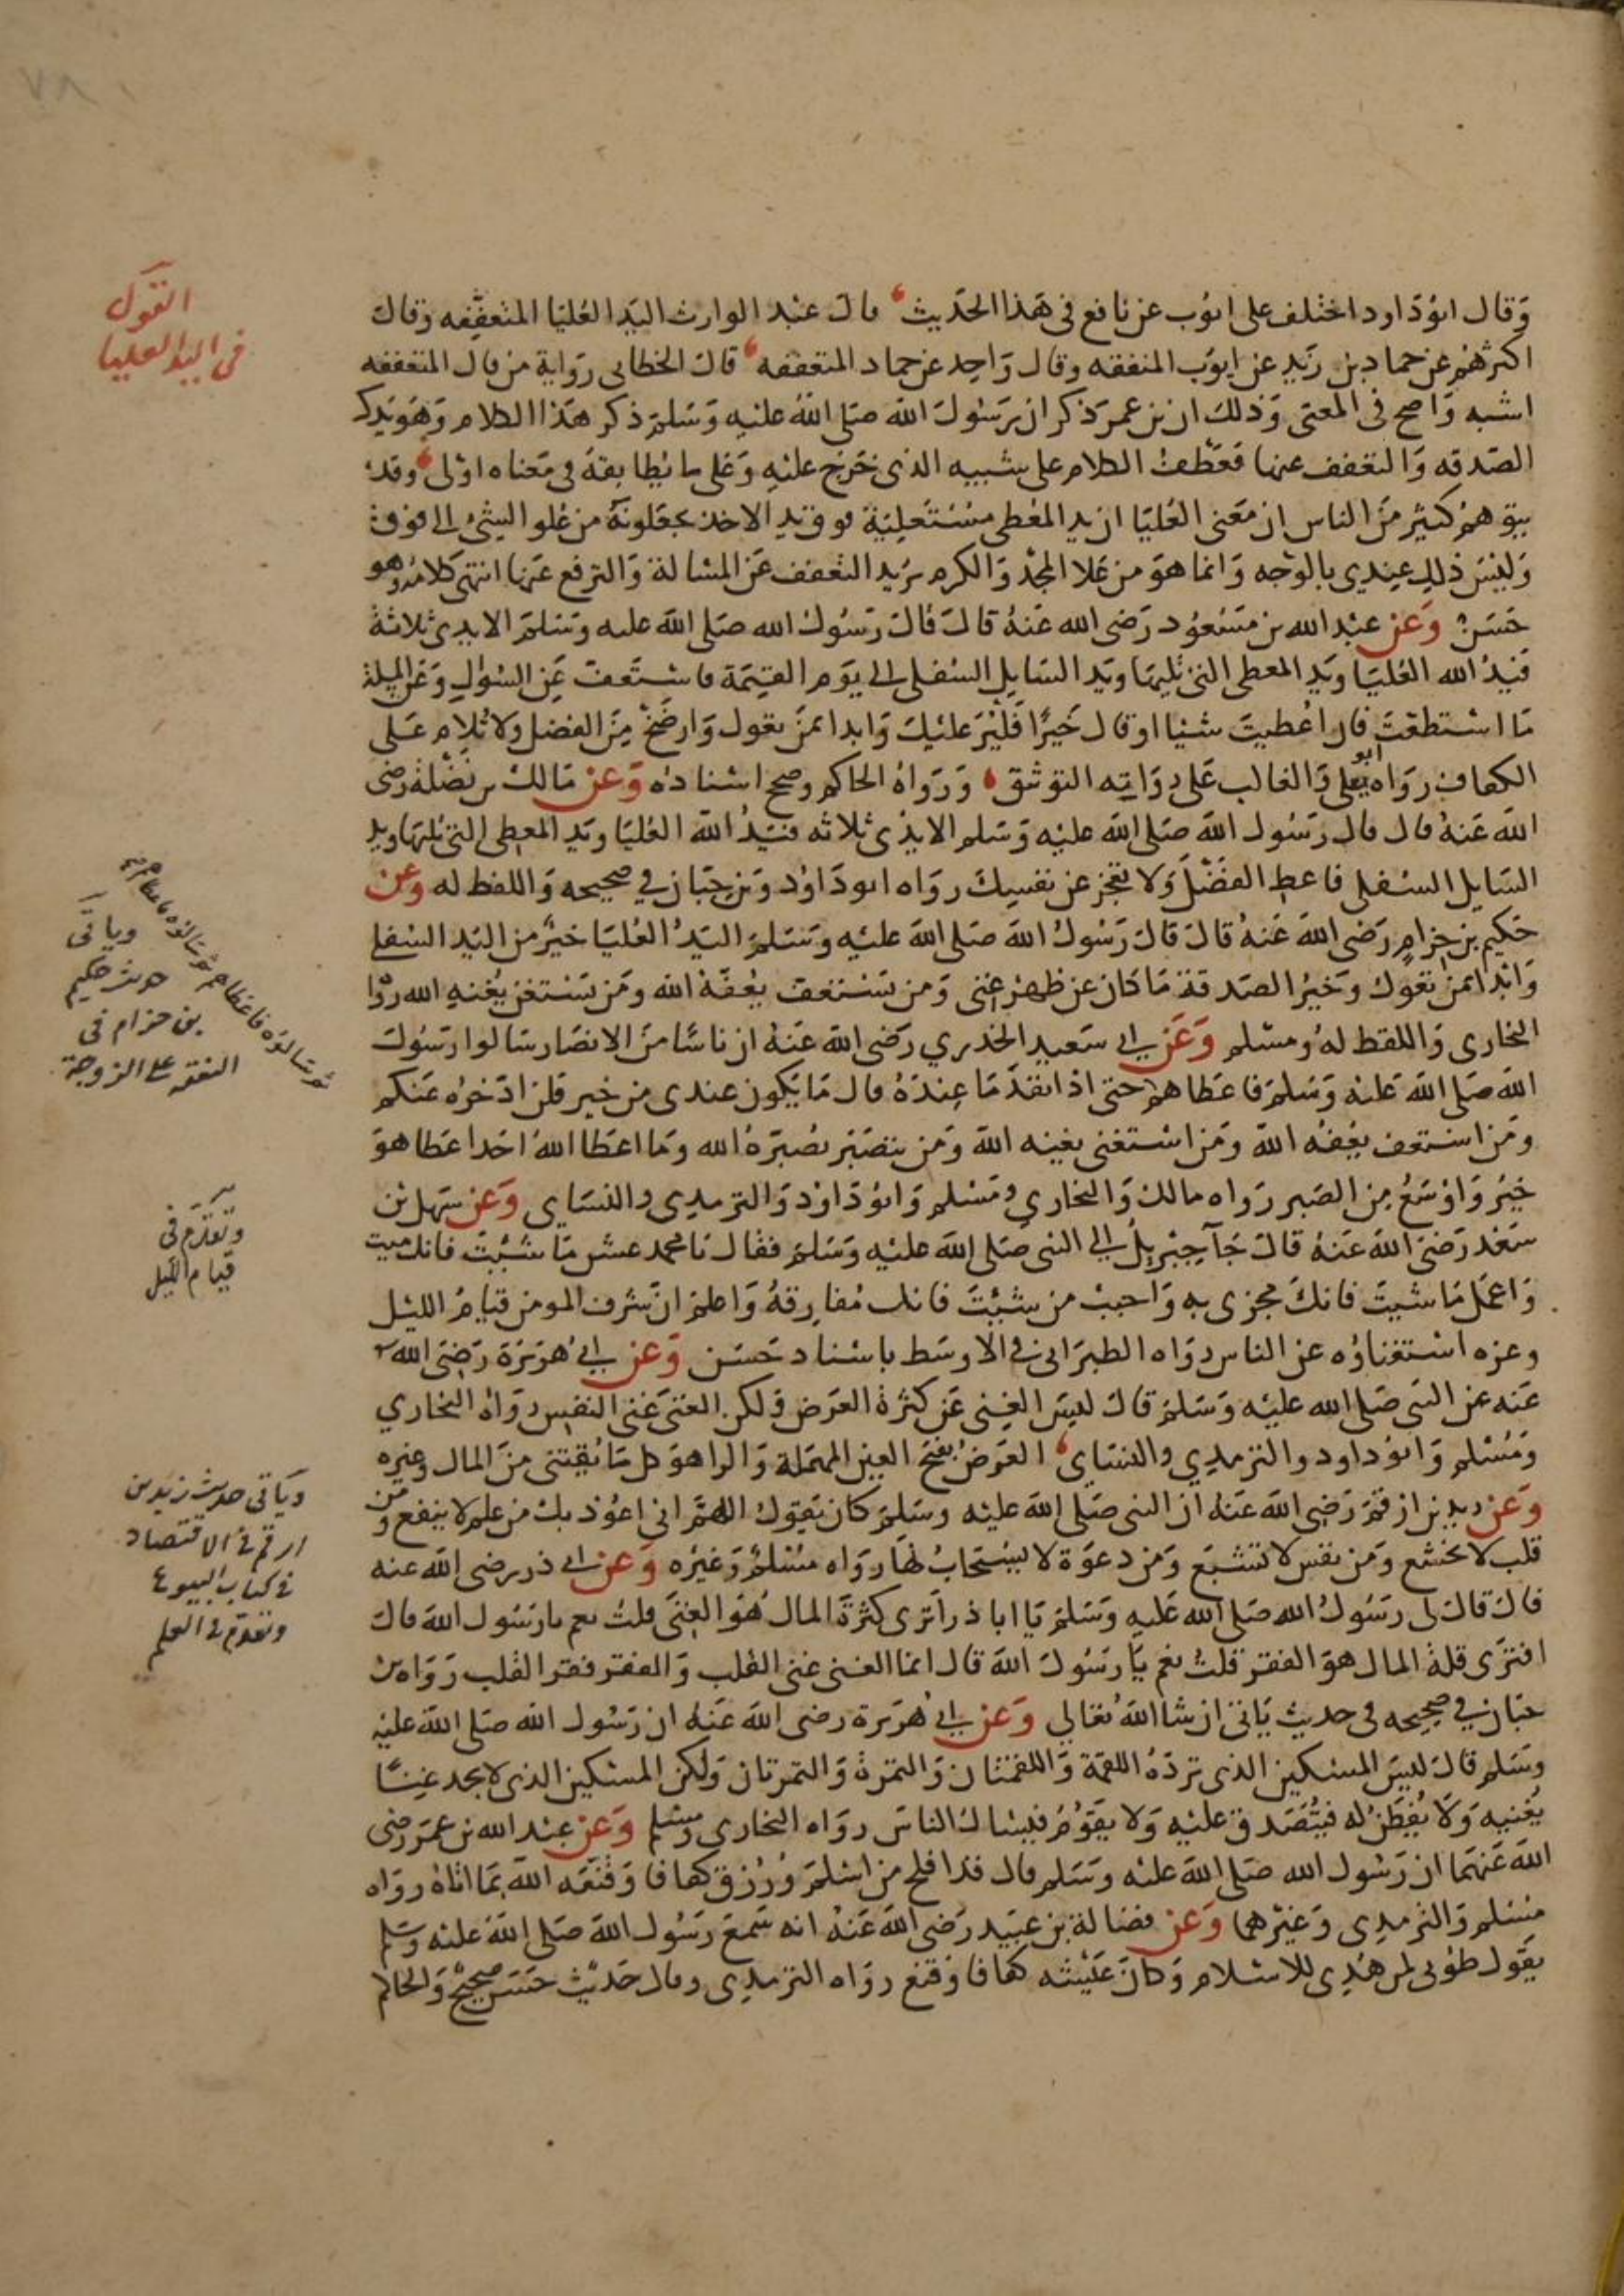 ٧٨
القول
فى اليد العليا
وَقال ابوُدَاود اختلف على ايوُب عن نافع فى هَذا الحَديث قال عبْد الوارث اليَد العُليَا المتعفِّفه وَقال
اكثرهُم عن حماد بن زَيد عن ايوُب المنفقه وقال وَاحِد عن حماد المتعففه قال الخطابى رِوَاية من قال المتعففه
اشبه وَاصح فى المعنى وَذلك ان بن عمر ذكر ان رسُول الله صَلى اللهُ عليه وَسَلم ذكر هَذا الكلام وَهوَ يذكر
الصَدقه وَالتعفف عنها فعَطفُ الكلام على سَببِه الذى خرَج عليْهِ وَعَلى ما يُطابِقهُ فى مَعناه اوْلى وقد
يتوَهمُ كثيْر منَ الناس ان مَعنى العُليَا ان يد المعُطى مُسْتَعلِيَة فوق يَد الاخذ يجعَلونَه من عُلو الشئ الى فوق
وَليْسَ ذلك عِندِى بالوَجه وَانما هوَ من عَلا المجْد وَالكرم يرُيد التعَفف عَن المسْالة وَالترفع عَنها انتهى كلامُهُ وهو
حَسَنٌ وَعَن عبْد الله بن مَسْعُود رَضى الله عَنهُ قال قال رَسُول الله صَلى الله عليه وَسَلم الايدى ثلاثة
فيَدُ الله العُليَا وَيَد المعطى التى تليهَا وَيَد السَايل السُفلى الى يَوم القيَمَة فاسْتعفّ عَن السُؤال وَعَن المسلة
مَا اسْتطعْتَ فان اعُطيتَ شيْئا اوقال خَيرًا فَليُرَ عليْك وَابدا بمن تعوُل وَارضَخْ مِن الفضل وَلا تُلام عَلى
الكفاف روَاه ابو يعلى وَالغالب عَلى رِوَاتِه التوثيق وَرَوَاهُ الحاكم وصحح اسْنادَه وَعَن مَالك بن نضْلَة رضى
الله عَنهُ قال قال رسُول الله صَلى الله عليْه وَسَلم الايْدى ثلاثه فيَدُ الله العُليَا وَيَد المعطى التى تليهَا وَيد
السَايل السُفلى فاعط الفضْلَ وَلا تعْجز عن نفسِك روَاه ابودَاوُد وَبن حِبَان في صحيحه وَاللفظ له وَعَن
حَكيم بن حِزامٍ رَضى الله عَنهُ قال قال رسُول الله صَلى الله عليْه وَسَلم اليَدُ العُليَا خيْرٌ من اليَد السُفلى
وَابْدا بمن تعوُل وَخيْرُ الصَدقة مَا كان عن ظهْر غنى وَمن يَسْتعفف يُعفّهُ الله وَمَن يَسْتغن يُغنهِ الله روَاه
البخارى وَاللفظ لهُ ومسْلم وَعَن ابى سَعيد الخدرى رَضى الله عَنهُ ان ناسًا منَ الانصَار سَالوا رسُول
الله صَلى الله عَليْه وَسَلم فاعطاهم حتى اذا نفدَ مَا عِندَهُ قال مَا يكون عندى من خير فلن ادّخرهُ عَنكم
وَمَن استعف يُعِفّهُ الله وَمَن اسْتغنى يغنِه الله وَمَن يتصَبّر يُصَبّرهُ الله وَما اعطا اللهُ احَدا عَطا هوَ
خيْرٌ وَاوْسَعُ مِن الصَبر رَوَاه مالك وَالبخارى ومَسْلم وَابودَاوُد وَالترمدِى وَالنسَاى وَعَن سَهل بْن
سَعْد رَضىَ الله عَنهُ قال جَآ جِبْريلُ الى النبى صَلى الله عليْه وَسَلم فقال يَا محمد عش مَا شئْتَ فانك ميت
وَاعمَل مَا شيتَ فانك مجزى به وَاحبِبْ من شِئتَ فانك مُفارِقهُ وَاعلم ان شرف المومن قيَامُ الليْل
وعزه اسْتغناوُه عن الناس روَاه الطبرَانى فى الاوسَط باسْناد حَسَن وَعَن ابى هُرَيْرَة رَضِىَ الله
عَنه عن النبى صَلى الله عليْه وَسَلم قال ليسَ الغِنى عَن كثرة العَرض وَلكن الغنى غنى النفس رَوَاه البخاري
وَمُسْلم وَابوُداود والترمِدي والنسَاى العَرَضُ بفتح العين المهمَلة وَالرا هوَ كل مَا يُقتنى منَ المال وَغيره
وَعَن زيد بن ارقمْ رَضِى الله عَنهُ ان النبى صَلى الله عليْه وسَلم كان يَقول اللهمَّ انى اعوُذ بك من علم لا ينفع وَمن
قلب لا يخشع وَمَن نفس لا تشبَع وَمن دعوَة لا يسْتجَابُ لهَا روَاه مسْلمٌ وَغيْره وَعَن ابى ذر رضى الله عنه
قال قال لى رسُولُ الله صَلى الله عَليه وَسَلم يَا ابا ذر اترى كثرَة المال هُوَ الغِنى قلتُ نعم يارسُول الله قال
افترَى قلة المال هوَ الفقر قلتُ نعم يَا رسُول الله قال انما الغنى غنى القلب وَالفقر فقر القلب رَوَاه بن
حبَان في صحيحه فى حديث يَاتى ان شَا اللهُ تعَالى وَعَن ابى هُرَيرة رضى الله عَنهُ ان رَسُول الله صَلى الله عليه
وسَلم قال ليسَ المسْكين الذى تردّهُ اللقمَة وَاللقمَتان وَالتمرَة وَالتمرتان وَلكن المسْكين الذى لا يجد غِنًا
يُغنيهِ وَلا يُفطَنُ له فيُتَصَدق عليْه وَلا يقوُمُ فيسْال الناسَ روَاه البخارى ومسْلم وَعَن عبْد الله بن عمَر رضى
الله عَنهُمَا ان رسُول الله صَلى الله عليْه وسَلم قال قد افلح من اسْلمَ وَرُزق كفافا وَقنّعَه الله بمَا اتاهُ روَاه
مسْلم وَالترمدِى وَغيْرهما وَعَن فضالة بن عبَيد رَضى الله عَنهُ انه سَمعَ رَسُول الله صَلى الله عليْه وسَلم
يقول طوُبى لمن هُدِى للاسْلام وَكانَ عَيْشه كفافا وَقنع روَاه الترمدِى وقال حَديْث حَسَن صَحيحٌ وَالحاكم
ثم سَالوُه فاعطاهم ثم سَالوُه فاعطاهم
وياتى
حديث حكيم
بن حزام فى
النفقه على الزوجة
وتقدّم فى
قيام الليل
وَياتى حديث زيد بن
ارقم فى الاقتصاد
فى كتاب البيوع
وتقدّم فى العلم